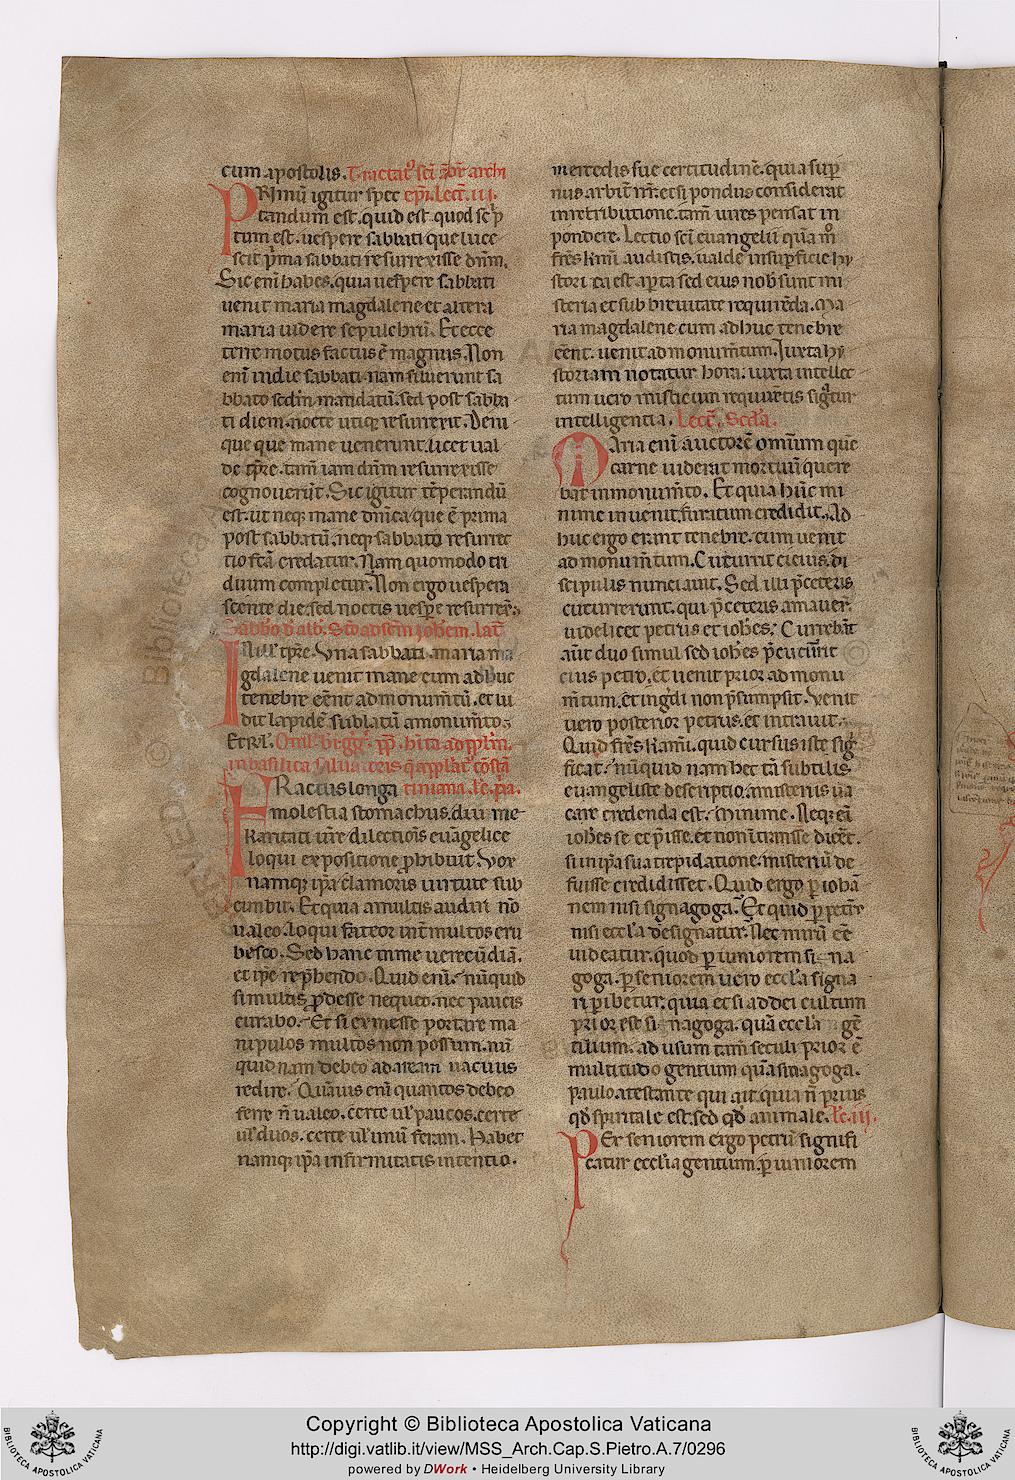 cum apostolis. Tractat⁹ scī
PRimū igitur spec epī. Lect̄. iii.
tandum est. quid est quod sc̄p
tum est. uespere sabbati que luce
scit p̄ma sabbati resurrexisse dn̄m.
Sic eni habes. quia uespere sabbati
uenit maria magdalene et altera
maria uidere sepulchrū. Et ecce
terre motus factus ē magnus. Non
enī in die sabbati. nam siluerunt sa
bbato scdm mandatū. sed post sabba
ti diem. nocte utiq; resurrexit. Deni
que que mane uenerunt. licet ual
de tp̄re. tam̄ iam dn̄m resurrexisse
cognouerūt. Sic igitur tēperandū
est. ut neq; mane dn̄ica que ē prima
post sabbatū. neq; sabbato resurrec
tio fc̄a credatur. Nam quomodo tri
duum completur. Non ergo uespera
scente die. sed noctis uesp̄e resurrex̄.
Sabb̄o ī alb̄. Scd̄ adscīm Ioh̄em. Lact̄
IN ill tp̄re. Una sabbati. maria ma
gdalene uenit mane cum adhuc
tenebre eēnt ad monum̄tū. et ui
dit lapidē sublatū a monum̄to.
Et rl̄. Omel. b̄i Greg. pp̄. hīta ad pplm̄.
in basilica
FRactus longa tiniana. Lc̄. p̄a.
molestia stomachus. diu me
karitati ur̄e dilectiōis euāgelice
loqui expositione phibuit. Vox
namq; ip̄a clamoris uirtute sub
cunbit. Et quia a multis audiri nō
ualeo. loqui fateor int̄ multos eru
besco. Sed hanc in me uerecūdiā.
et ip̄e rep̄hendo. Quid enī. nūquid
si multis p̄desse nequeo. nec paucis
curabo. Et si ex messe portare ma
nipulos multos non possum. nū
quid nam debeo ad aream uacuus
redire. Quāuis enī quantos debeo
ferre n̄ ualeo. certe ul̄ paucos. certe
ul̄ duos. certe ul̄ unū feram. Habet
namq; ip̄a infirmitatis intentio.
mercedis sue certitudinē. quia sup̄
nus arbiter nr̄. etsi pondus considerat
in retributione. tam̄ uires pensat in
pondere. Lectio scī euangelii quā m⁰
frēs km̄i audistis. ualde in sup̄ficie hy
stori ca est ap̄ta sed eius nob̄ sunt mi
steria et sub breuitate requirēda. Ma
ria magdalene cum adhuc tenebre
eēnt. uenit ad monum̄tum. Iuxta hy
storiam notatur hora. iuxta intellec
tum uero misticum requirētis signatur
intelligentia. Lect̄. Scd̄a.
MAria enī auctorē omnium quē
carne uiderat mortuū quere
bat in monum̄to. Et quia hūc mi
nime inuenit. furatum credidit. Ad
huc ergo erant tenebre. cum uenit
ad monum̄tum. Cucurrit cicius. di
scipulis nunciauit. Sed illi p̄ ceteris
cucurrerunt. qui p̄ ceteris amauer̄.
uidelicet petrus et ioh̄es. Currebāt
aūt duo simul sed ioh̄es p̄cucurrit
cius petro. et uenit prior ad monu
m̄tum. et inḡdi non p̄sumpsit. Venit
uero posterior petrus. et intrauit.
Quid frēs kam̄i. quid cursus iste sig̅
ficat. nūquid nam hec tā subtilis
euangeliste descriptio. a misteriis ua
care credenda est. Minime. Neq; eī
ioh̄es se et p̄isse. et non intrasse dicēt.
si in ip̄a sua trepidatione. misteriū de
fuisse credidisset. Quid ergo p̄ iohā
nem nisi signagoga. Et quid p̄ petr̄
nisi eccl̄a designatur. Nec mirū eē
uideatur. quod p̄ iuniorem si na
goga. p̄ seniorem uero eccl̄a signa
ri p̄ibetur. quia et si ad dei cultum
prior est si nagoga. quā eccl̄a gē
tilium. ad usum tam̄ seculi prior ē
multitudo gentium quā sinagoga.
paulo atestante qui ait. quia n̄ prius
qd̄ spiritale est. sed qd̄ animale. Lc̄. iij.
PEr seniorem ergo petrū signifi
catur eccl̄ia gentium. p̄ iuniorem
Copyright © Biblioteca Apostolica Vaticana
http://digi.vatlib.it/view/MSS_Arch.Cap.S.Pietro.A.7/0296
powered by DWork • Heidelberg University Library
BIBLIOTECA APOSTOLICA VATICANA
BIBLIOTECA APOSTOLICA VATICANA